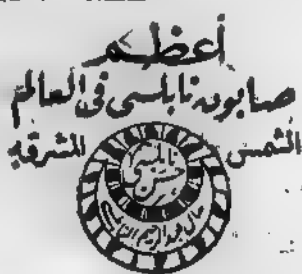 أعظم
صابون نابلسي في العالم
الشمس المشرقة
نابلسي
حسن